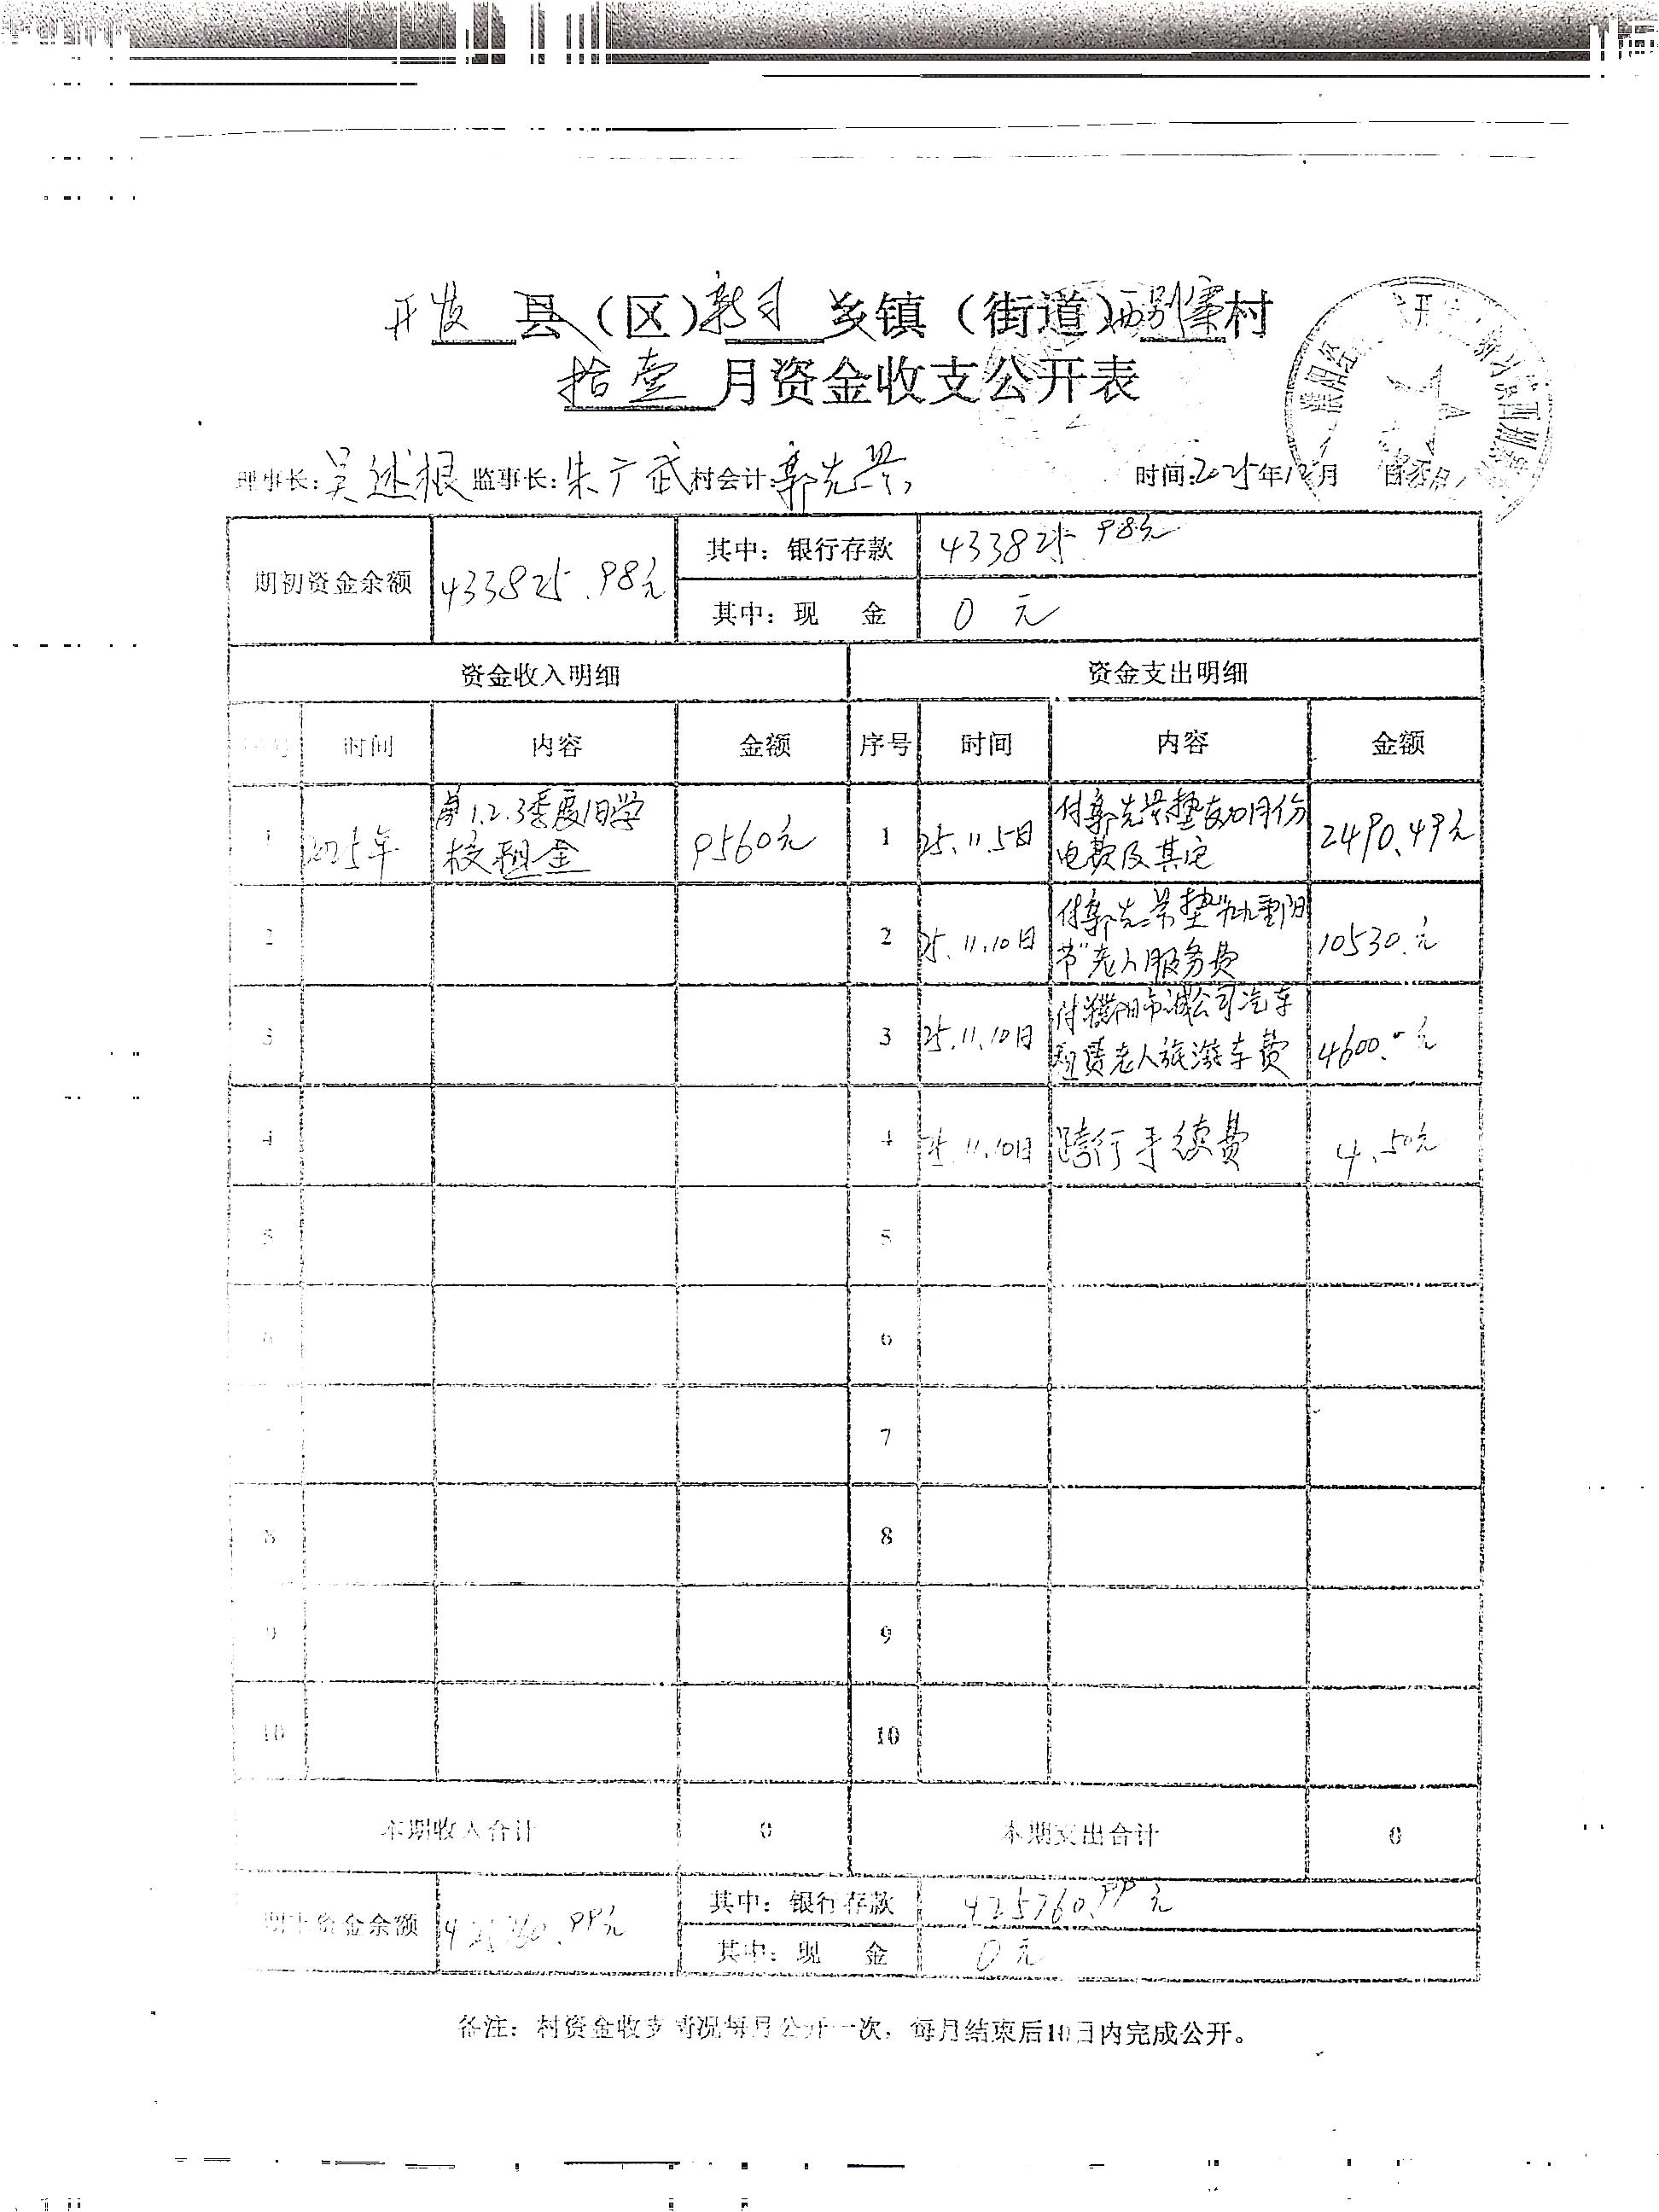 开发县（区）新习乡镇（街道）西别寨村
拾壹月资金收支公开表
理事长：吴述根 监事长：朱广武 村会计：郭先景 时间：2025年12月 日
期初资金余额 433825.98元 其中：银行存款 433825.98元
其中：现 金 0 元
资金收入明细 资金支出明细
序号 时间 内容 金额 序号 时间 内容 金额
1 2025年 第1.2.3季度旧学校租金 9560元 1 25.11.5日 付郭先景垫支10月份电费及其它 2490.49元
2 2 25.11.10日 付郭先景垫"九九重阳节"老人服务费 10530.元
3 3 25.11.10日 付濮阳市诚公司汽车租赁老人旅游车费 4600.0元
4 4 25.11.10日 跨行手续费 4.50元
5 5
6 6
7 7
8 8
9 9
10 10
本期收入合计 0 本期支出合计 0
期末资金余额 425760.99元 其中：银行存款 425760.99元
其中：现 金 0元
备注：村资金收支情况每月公开一次，每月结束后10日内完成公开。